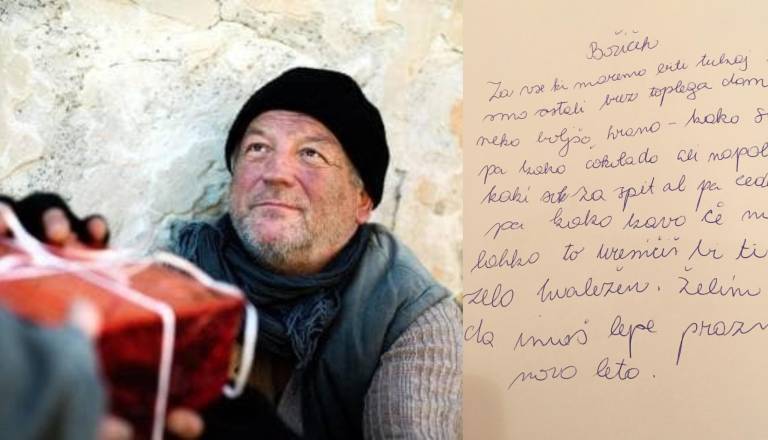 Božiček
Za vse ki moramo biti tukaj
smo ostali brez toplega dom
neko boljšo hrano - kako
pa kako čokolado ali
kaki za spit al pa
pa kako kavo če
lahko to uresničiš bi ti
zelo hvaležen. Želim
da imaš lepe prazn
novo leto.